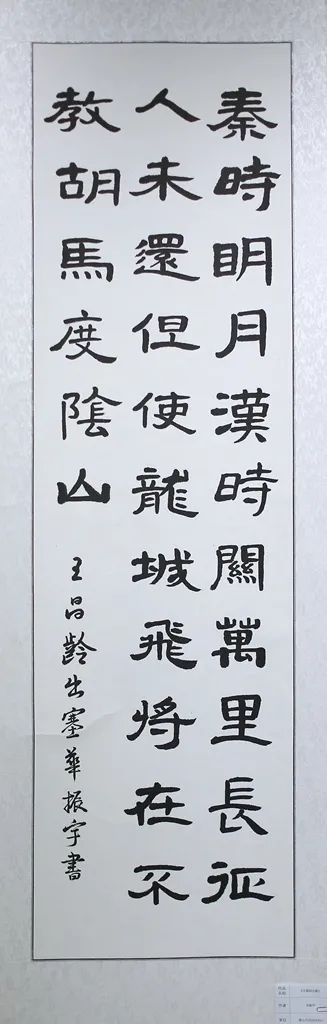 秦時明月漢時關萬里長征
人未還但使龍城飛將在不
教胡馬度陰山
王昌齡出塞華振宇書